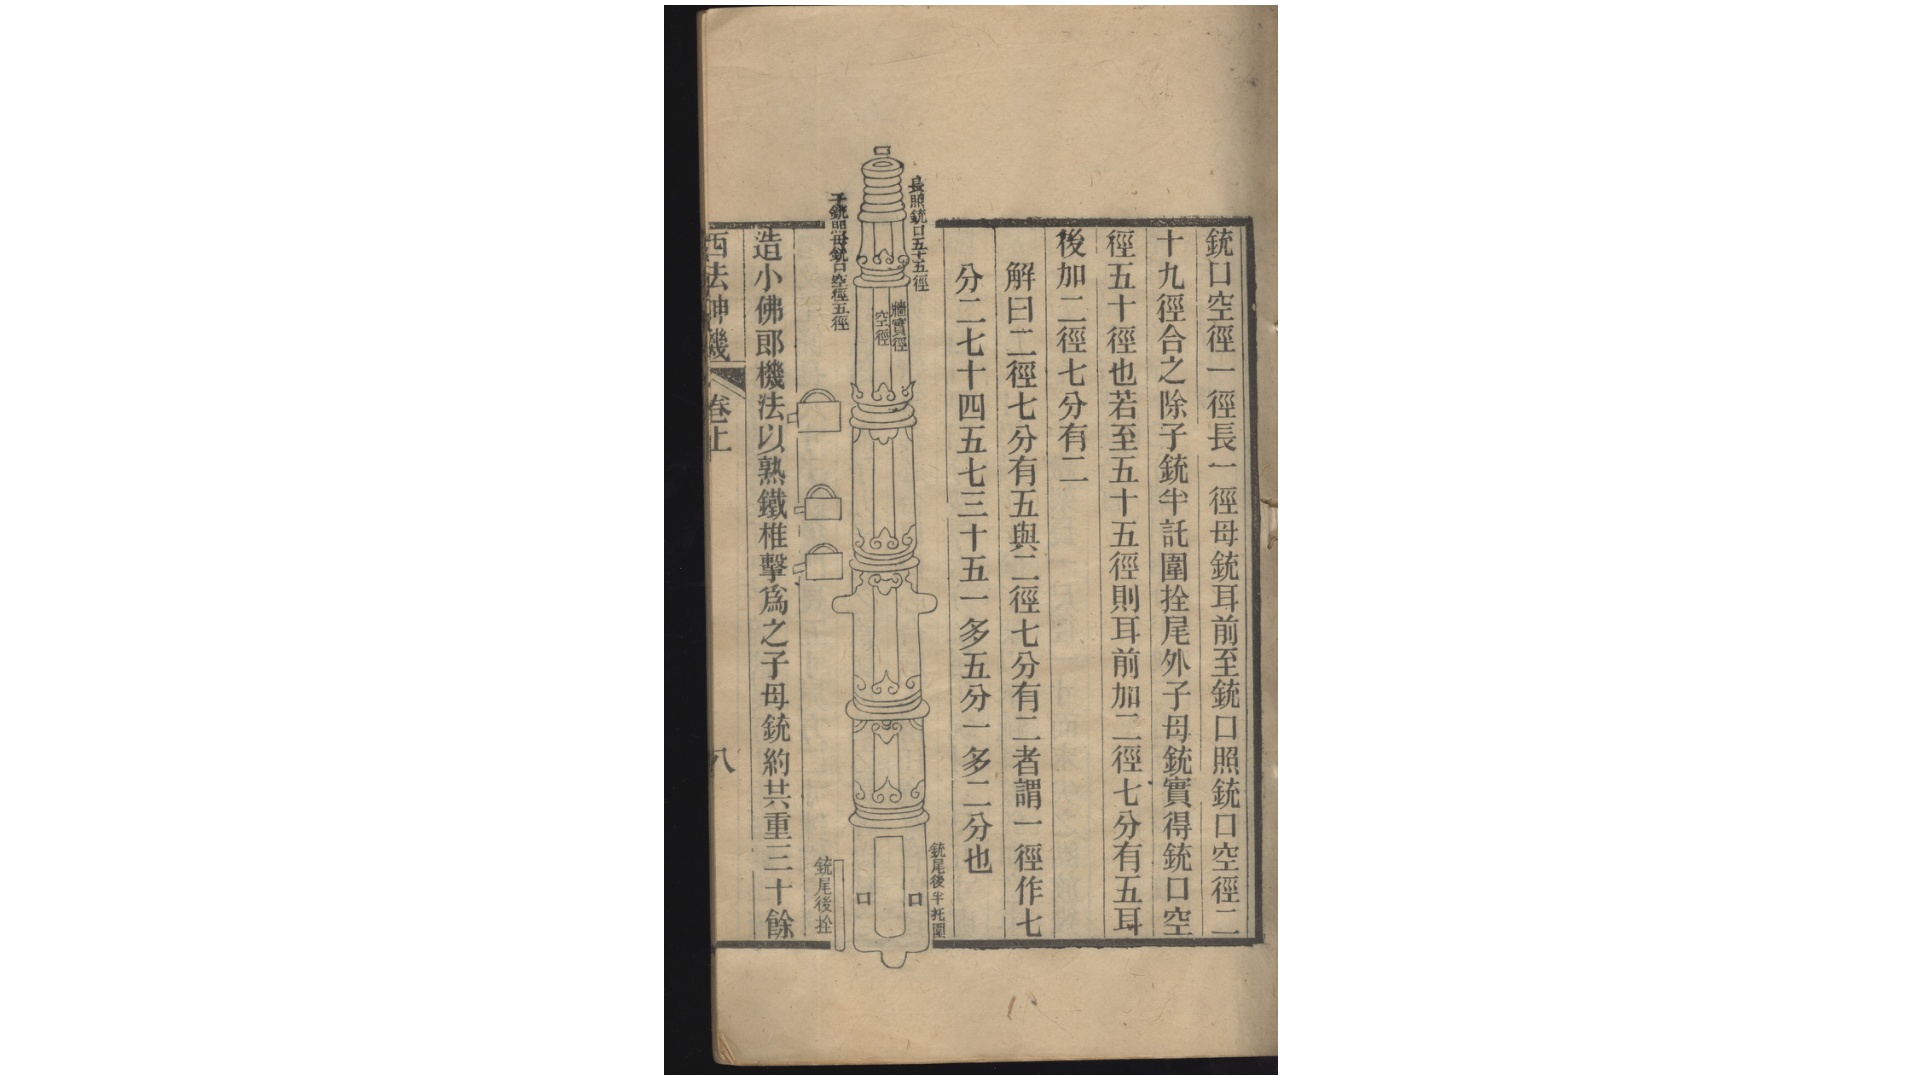 銃口空徑一徑長一徑母銃耳前至銃口照銃口空徑二
十九徑合之除子銃半託圍拴尾外子母銃實得銃口空
徑五十徑也若至五十五徑則耳前加二徑七分有五耳
後加二徑七分有二
解曰二徑七分有五與二徑七分有二者謂一徑作七
分二七十四五七三十五一多五分一多二分也
長照銃口五十五徑
牆實徑
空徑
子銃照母銃口空徑五徑
銃尾後半托圍
口
口
銃尾後拴
造小佛郎機法以熟鐵椎擊爲之子母銃約共重三十餘
西法神機
卷上
八